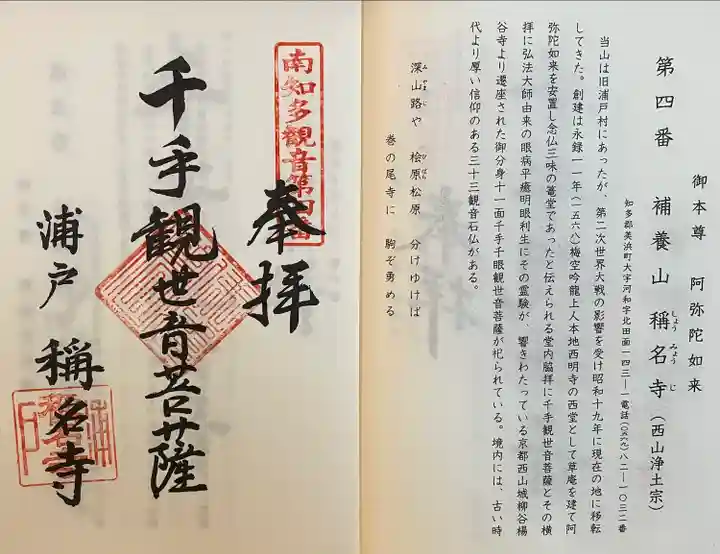 御本尊 阿弥陀如来
第四番 補養山 稱名寺(西山浄土宗)
しょう みょう じ
知多郡美浜町大字河和字北田面一四三―一電話(〇五六九)八二―一〇三二番
当山は旧浦戸村にあったが、第二次世界大戦の影響を受け昭和十九年に現在の地に移転
してきた。創建は永録一一年(一五六八)梅空吟龍上人本地西明寺の西堂として草庵を建て阿
弥陀如来を安置し念仏三昧の篭堂であったと伝えられる堂内脇拝に千手観世音菩薩とその横
拝に弘法大師由来の眼病平癒明眼利生にその霊験が、響きわたっている京都西山城柳谷楊
谷寺より遷座された御分身十一面千手千眼観世音菩薩が祀られている。境内には、古い時
代より厚い信仰のある三十三観音石仏がある。
深山路や 桧原松原 分けゆけば
巻の尾寺に 駒ぞ勇める
南知多観音第四番
奉拝
千手観世音菩薩
浦戸 稱名寺